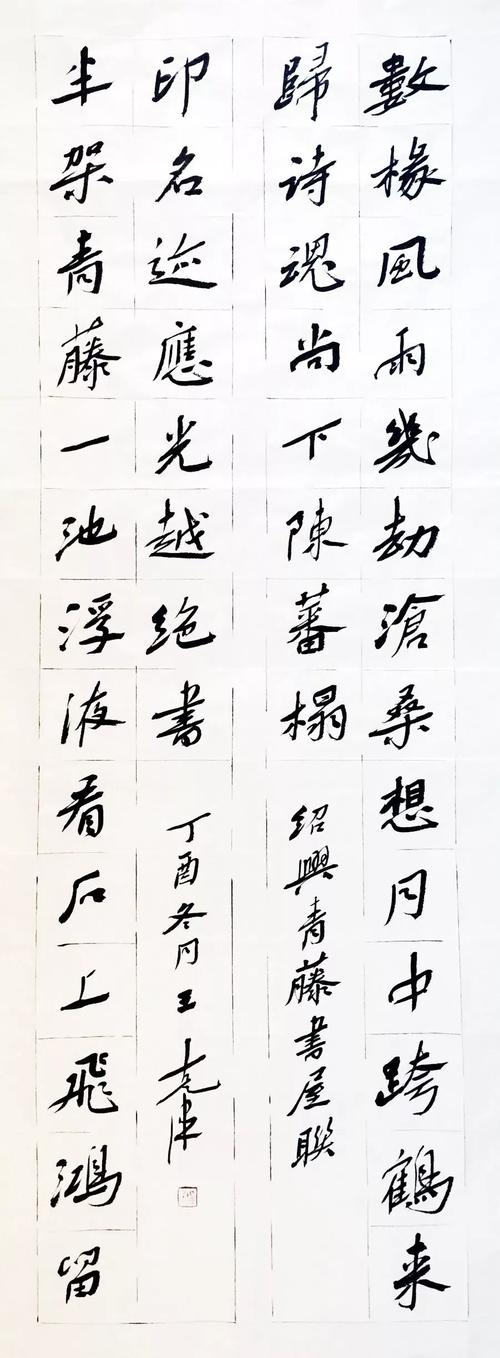 數椽風雨幾劫滄桑想月中跨鶴来
歸詩魂尚下陳蕃榻
紹興青藤書屋聯
半架青藤一池浮液看石上飛鴻留
印名迹應光越絶書
丁酉冬月王